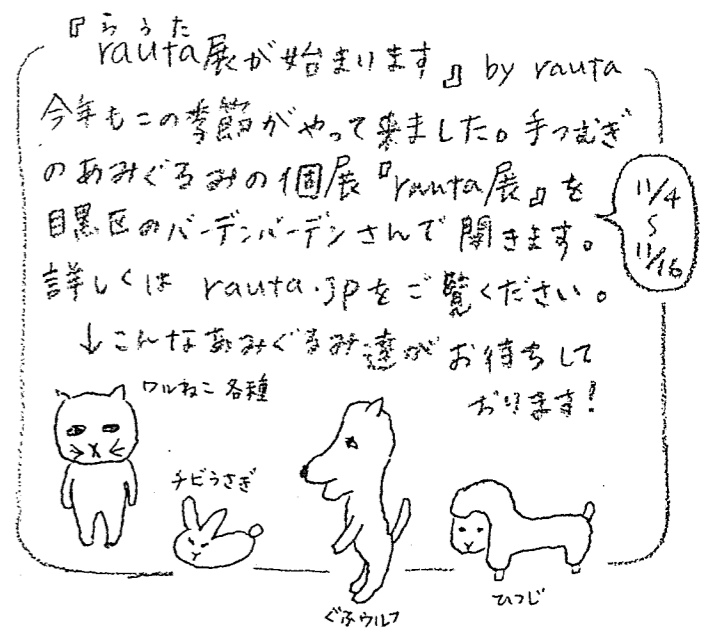 『rauta展が始まります』 by rauta
らうた
今年もこの季節がやって来ました。手つむぎ
のあみぐるみの個展『rauta展』を
目黒区のバーデンバーデンさんで開きます。
11/4
〜
11/16
詳しくは rauta.jpをご覧ください。
↓こんなあみぐるみ達がお待ちして
おります!
ワルねこ各種
チビうさぎ
ぐふウルフ
ひつじ